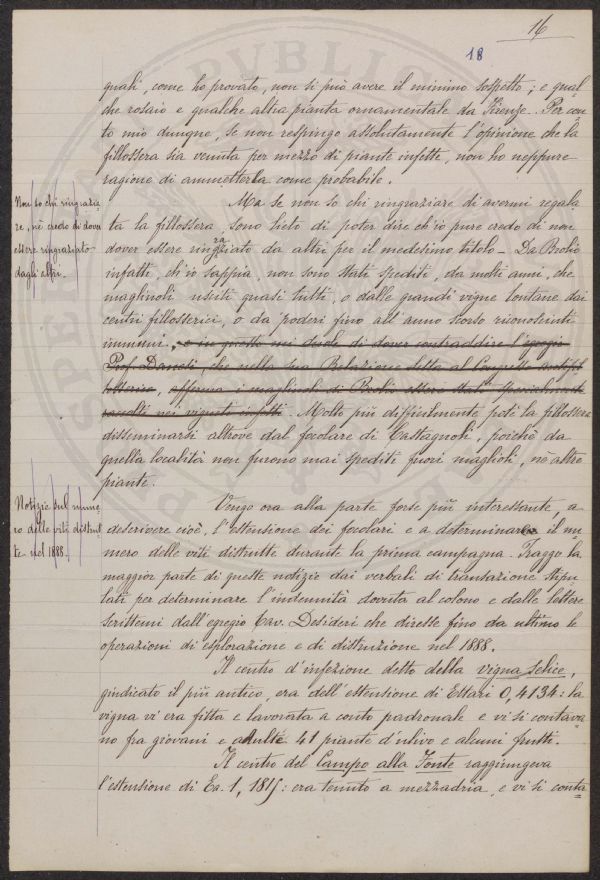 16
18
quali, come ho provato, non si può avere il minimo sospetto; e qual
che rosaio e qualche altra pianta ornamentale da Firenze. Per con
to mio dunque, se non respingo assolutamente l'opinione che la
fillossera sia venuta per mezzo di piante infette, non ho neppure
ragione di ammetterla come probabile.
Non so chi ringrazia
re, nè credo di dover
essere ringraziato
dagli altri.
Ma se non so chi ringraziare di avermi regala
ta la fillossera, sono lieto di poter dire ch'io pure credo di non
dover essere ringraziato da altri per il medesimo titolo – Da Brolio
infatti, ch'io sappia, non sono stati spediti, da molti anni, che
magliuoli usciti quasi tutti, o dalle grandi vigne lontane dai
centri fillosserici, o da poderi fino all'anno scorso riconosciuti
immuni, e in questo mi duole di dover contraddire l'egregio
Prof. Danesi, che nella sua Relazione letta al Congresso antifil
losserico, afferma i magliuoli di Brolio essere stati
raccolti nei vigneti infetti. Molto più difficilmente potè la fillossera
disseminarsi altrove dal focolare di Castagnoli, poichè da
quella località non furono mai spediti fuori maglioli, nè altre
piante.
Notizie sul nume
ro delle viti distrut
te nel 1888.
Vengo ora alla parte forse più interessante, a
descrivere cioè, l'estensione dei focolari e a determinare il nu
mero delle viti distrutte durante la prima campagna. Traggo la
maggior parte di queste notizie dai verbali di transazione stipu
lati per determinare l'indennità dovuta al colono e dalle lettere
scrittemi dall'egregio Cav. Desideri che diresse fino da ultimo le
operazioni di esplorazione e di distruzione nel 1888.
Il centro d'infezione detto della vigna Selice,
giudicato il più antico, era dell'estensione di Ettari 0,4134: la
vigna vi era fitta e lavorata a conto padronale e vi si contava
no fra giovani e adulte 41 piante d'ulivo e alcuni frutti.
Il centro del Campo alla Fonte raggiungeva
l'estensione di Ea. 1,1815: era tenuto a mezzadria, e vi si conta